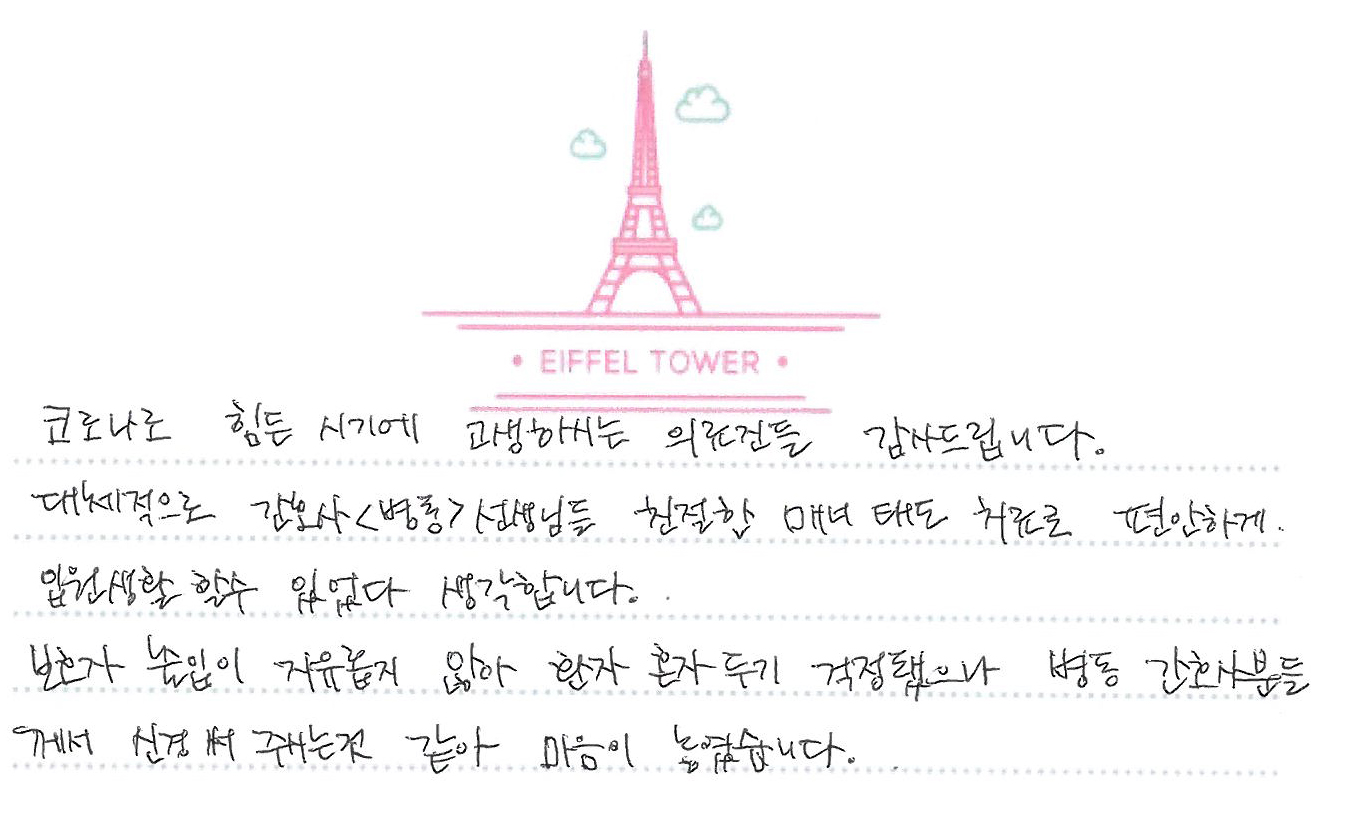 • EIFFEL TOWER •
코로나로 힘든 시기에 고생하시는 의료진들 감사드립니다.
대체적으로 간호사<병동>선생님들 친절함 매너 태도 치료로 편안하게.
입원생활 할수 있었다 생각합니다.
보호자 출입이 자유롭지 않아 환자 혼자 두기 걱정됐으나 병동 간호사분들
께서 신경 써 주시는것 같아 마음이 놓였습니다.